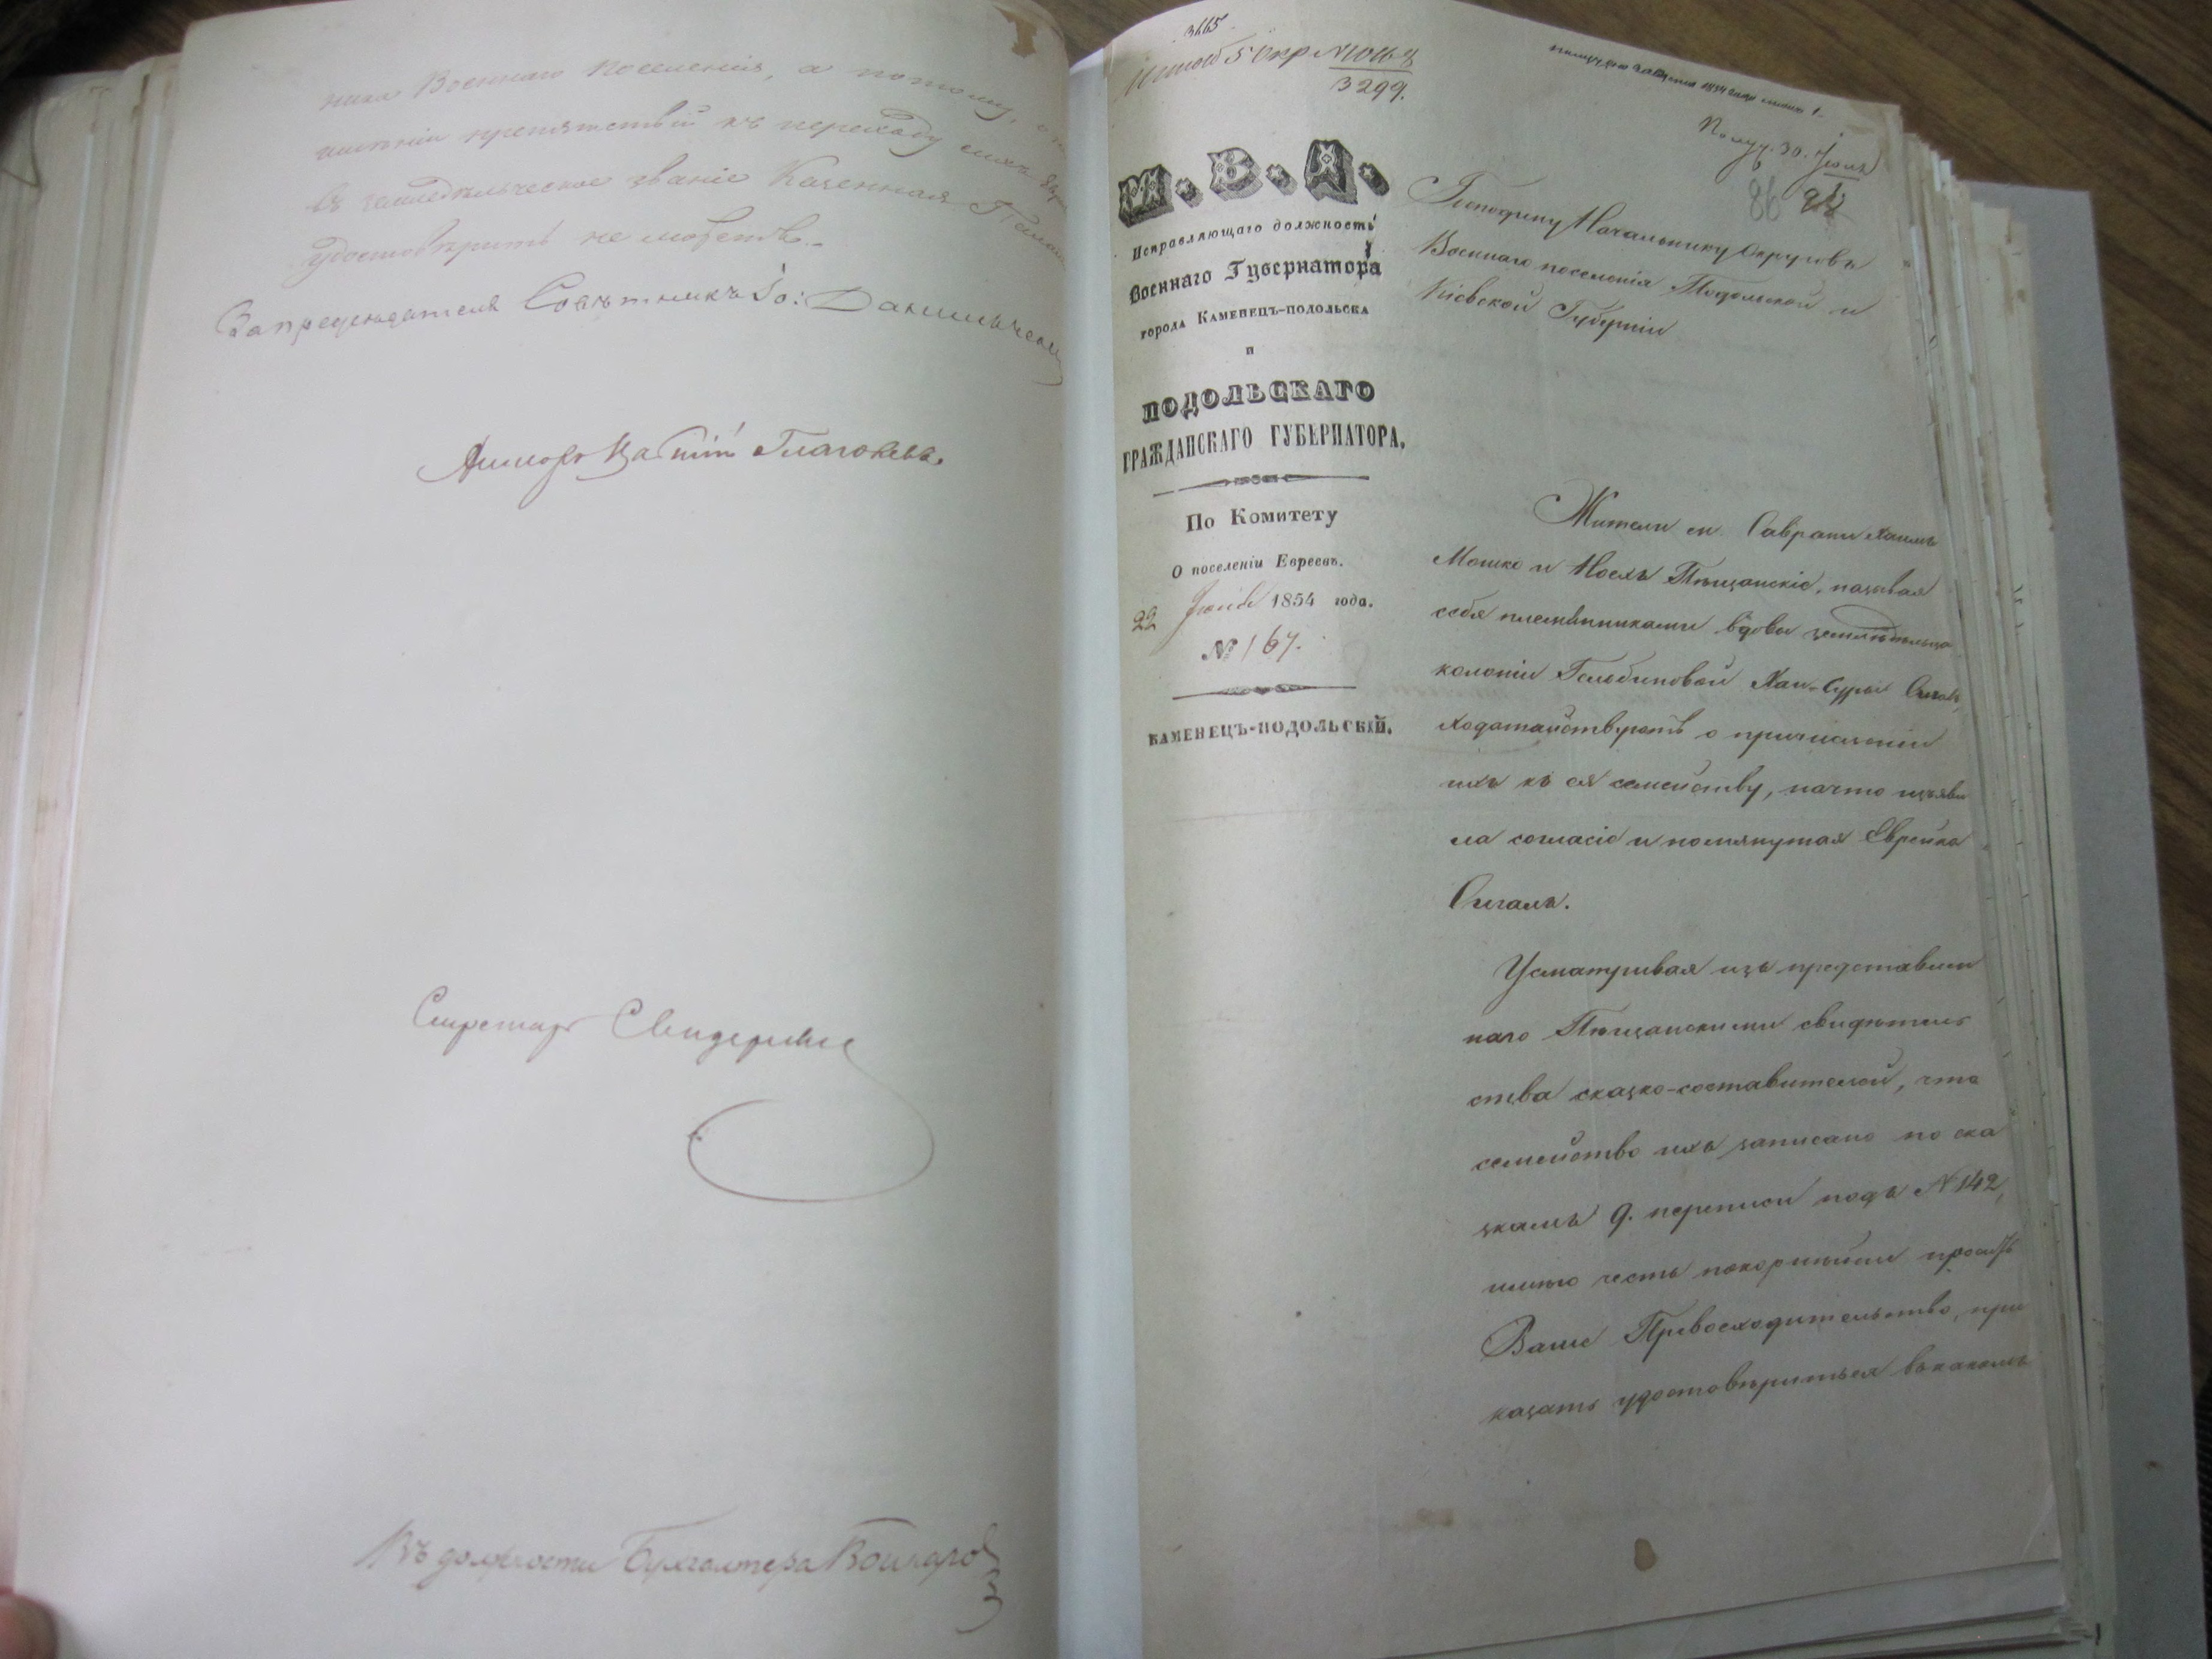 ника Военнаго Поселенія, а потому, о не
имѣніи препятствій къ переходу сихъ Евре
въ земледѣльческое званіе Казенная Палата
удостовѣрить не можетъ.
За предсѣдателя Совѣтникъ
Ассесоръ Глаголевъ
Секретарь
Въ должности Бухгалтера
3665
5 Окр
3299.
1854 года
Получ. 30. Іюля
86
М. В. Д.
Исправляющаго должность
Военнаго Губернатора
города Каменецъ-подольска
и
ПОДОЛЬСКАГО
ГРАЖДАНСКАГО ГУБЕРНАТОРА.
По Комитету
О поселеніи Евреевъ.
22 1854 года.
№ 167.
КАМЕНЕЦЪ-ПОДОЛЬСКІЙ.
Господину Начальнику Округовъ
Военнаго поселенія Подольской и
Кіевской Губерніи
Жители м. Саврани Хаимъ
Мошко и Іосъ Пѣщанскіе, называя
себя племянниками вдовы земледѣльца
колоніи Хаи-Суры Сигалъ,
ходатайствуютъ о причисленіи
ихъ къ ея семейству, на что изъяви
ла согласіе и помянутая Еврейка
Сигалъ.
Усматривая изъ представлен
наго Пѣщанскими свидѣтель
ства сказко-составителей, что
семейство ихъ записано по ска
зкамъ 9. переписи подъ № 142,
имѣю честь покорнѣйше просить
Ваше Превосходительство, при
казать удостовѣриться въ какомъ